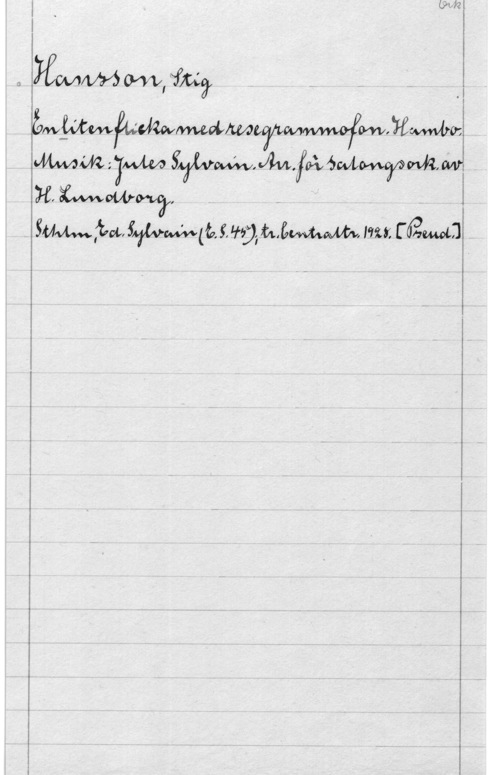 Ork
Hansson, Stig
En liten flicka med resegrammofon. Hambo.
Musik: Jules Sylvain. Arr. för salongsork. av
H. Lundborg.
Sthlm, Ed. Sylvain (E. S. 45), tr. Centraltr. 1928. [Pseud.]